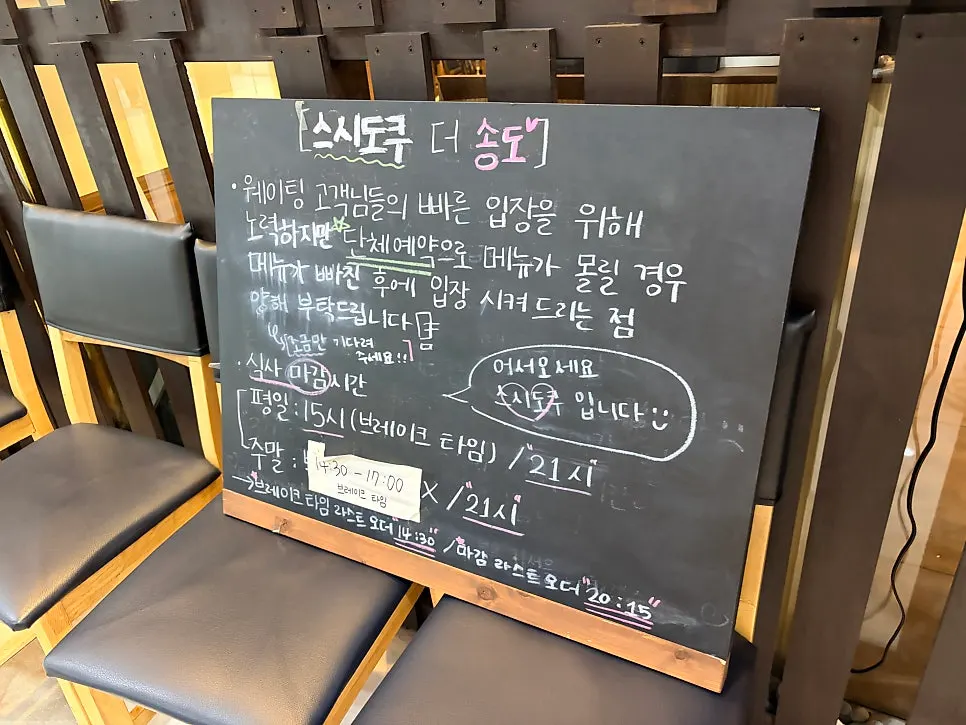 [스시도쿠 더 송도]
· 웨이팅 고객님들의 빠른 입장을 위해
노력하지만 단체예약으로 메뉴가 몰릴 경우
메뉴가 빠진 후에 입장 시켜 드리는 점
양해 부탁드립니다
조금만 기다려
주세요!!
어서오세요
스시도쿠 입니다
· 식사 마감시간
평일 : 15시 (브레이크 타임) / "21시"
주말 : X / "21시"
14:30 - 17:00
브레이크 타임
→ 브레이크 타임 라스트 오더 "14:30" / 마감 라스트 오더 "20:15"